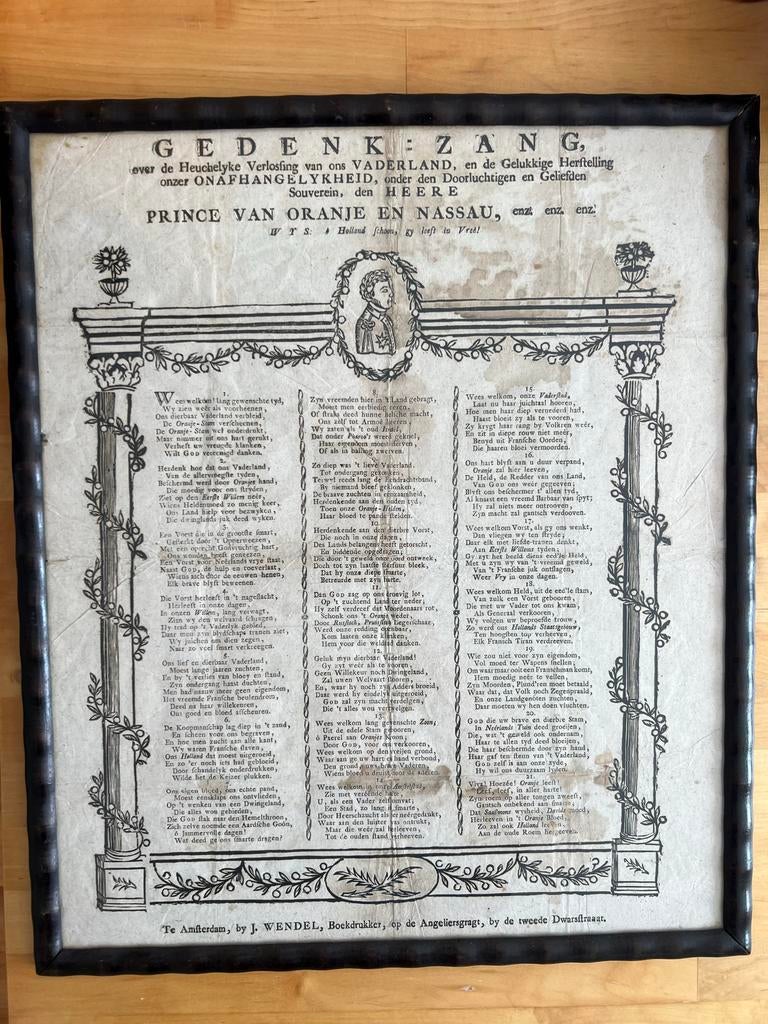 GEDENK-ZANG,
over de Heuchelyke Verlossing van ons VADERLAND, en de Gelukkige Herstelling
onzer ONAFHANGELYKHEID, onder den Doorluchtigen en Geliefden
Souverein, den HEERE
PRINCE VAN ORANJE EN NASSAU, enz. enz. enz.
WYS: ô Holland schoon, gy leeft in Vreê!
1.
Wees welkom! lang gewenschte tyd,
Wy zien weêr als voorheenen,
Ons dierbaar Vaderland verbleid,
De Oranje-Stam verscheenen,
De Oranje-Stam wel onderdrukt,
Maar nimmer uit ons hart gerukt,
Verheft uw vreugde klanken,
Wilt GOD vereenigd danken.
2.
Herdenk hoe dat ons Vaderland,
Van de allervroegste tyden,
Beschermd werd door Oranjes hand,
Die moedig voor ons stryden,
Ziet op den Eerste Willem neêr,
Wiens Heldenmoed zo menig keer,
Ons Land hielp voor bezwyken,
De dwinglands juk deed wyken.
3.
Een Vorst die in de grootste smart,
Gesterkt door 't Opperweezen,
Met een oprecht Godvruchtig hart,
Ons wonden heeft geneezen,
Een Vorst voor Neêrlands vrye staat,
Naast GOD, de hulp en toeverlaat,
Wiens asch door de eeuwen heenen,
Elk brave blyft beweenen.
4.
Die Vorst herleeft in 't nageslacht,
Herleeft in onze dagen,
In onzen Willem, lang verwagt,
Zien wy den welvaard schraagen,
Hy trad op 't Vaderlyk gebied,
Daar men zyn blydschaps tranen ziet,
Wy juichen om dien zegen,
Naar zo veel smart verkreegen.
5.
Ons lief en dierbaar Vaderland,
Moest lange jaaren zuchten,
En by 't verlies van bloey en stand,
Zyn ondergang haast duchten,
Men had naauw meer geen eigendom,
Het vreemde Fransche beulendrom,
Deed na haar willekeuren,
Ons goed en bloed asscheuren.
6.
De Koopmanschap lag diep in 't zand,
En scheen voor ons begraven,
En hoe men zucht aan alle kant,
Wy waren Fransche slaven,
Ons Holland dat moest uitgeroeid,
En zo 'er noch iets had gebloeid,
Door schandelyk onderdrukken,
Wilde liet de Keizer plukken.
7.
Ons eigen bloed, ons echte pand,
Moest eensklaps ons ontvlieden,
Op 't wenken van een Dwingeland,
Die alles wou gebieden,
Die GOD stak naar den Hemelthroon,
Zich zelve noemde een Aardsche Goôn,
ô Jammervolle dagen!
Wat deed ge ons smarte dragen?
8.
Zyn vreemden hier in 't Land gebragt,
Moest men eerbiedig eeren,
Of strafs deed hunne helsche macht,
Ons zelf tot Armoê keeren,
Wy zaten als 't oud Israël,
Dat onder Pharao's wreed gekwel,
Haar eigendom moest derven,
Of als in balling zwerven.
9.
Zo diep was 't lieve Vaderland,
Tot ondergang gezonken,
Terwyl reeds lang de Eendrachtband,
By niemand bleef geklonken,
De braave zuchten in eenzaamheid,
Herdenkende aan den ouden tyd,
Toen onze Oranje-Helden,
Haar bloed te pande stelden.
10.
Herdenkende aan den dierbre Vorst,
Die noch in onze dagen,
Des Lands belangen heeft getorscht,
En biddende opgedragen;
Die door 't geweld ons Oord ontweek,
Doch tot zyn laatste stersuur bleek,
Dat hy onze diepe smarte,
Betreurde met zyn harte.
11.
Dan GOD zag op ons droevig lot,
Op 't zuchtend Land ter neder,
Hy zelf verdreef dat Moordenaars rot,
Schonk ons 't Oranje weder,
Door Russisch, Pruisisch Legerschaar,
Werd onze redding openbaar,
Kom laaten onze klanken,
Hem voor die weldaad danken.
12.
Geluk myn dierbaar Vaderland!
Gy zyt weêr als te vooren,
Geen Willekeur noch Dwingeland,
Zal uwen Welvaart stooren,
En, waar hy noch zyn Adders broeid,
Daar werd hy eindelyk uitgeroeid,
GOD zal zyn macht verdelgen,
Die 't alles wou verzwelgen.
13.
Wees welkom lang gewenschte Zoon,
Uit de edele Stam gebooren,
ô Paerel aan Oranjes Kroon,
Door GOD, voor ons verkooren,
Wees welkom op den vreijen grond,
Waar aan ge uw hart en hand verbond,
Den grond, uws braven Vaderen,
Wiens bloed u druist door de aderen.
14.
Wees welkom in onze Amstelstad,
Zie met verrukte harte,
U, als een Vader zelf omvat;
Een Stad, zo lang in smarte,
Door Heerschzucht als ter neêrgedrukt,
Waar aan den luister was ontrukt,
Maar die weêr zal herleeven,
Tot de ouden stand verheeven.
15.
Wees welkom, onze Vaderstad,
Laat nu haar juichtaal hooren,
Hoe men haar diep vernederd had,
Haast bloeit zy als te vooren,
Zy krygt haar rang by Volkren weêr,
En zit in diepe rouw niet meêr,
Benyd uit Fransche Oorden,
Die haaren bloei vermoorden.
16.
Ons hart blyft aan u duur verpand,
Oranje zal hier leeven;
De Held, de Redder van ons Land,
Van GOD ons weêr gegeeven;
Blyft ons beschermer t' allen tyd,
Al knaast een vreemd Barbaar van spyt;
Hy zal niets meer ontrooven,
Zyn macht zal gantsch verdooven.
17.
Wees welkom Vorst, als gy ons wenkt,
Dan vliegen wy ten stryde;
Daar elk met liefde-tranen denkt,
Aan Eerste Willems tyden;
Gy zyt het beeld diens eedle Held,
Met u zyn wy van 't vreemd geweld,
Van 't Frankische juk ontslagen,
Weer Vry in onze dagen.
18.
Wees welkom Held, uit de eed'le stam,
Van zulk een Vorst gebooren,
Die met uw Vader tot ons kwam,
Als Generaal verkooren,
Wy volgen uw beproefde trouw,
Zo werd ons Hollands Staatsgebouw
Ten hoogsten top verheeven,
Elk Fransch Tiran verdreeven.
19.
Wie zou niet voor zyn eigendom,
Vol moed ter Wapens snellen,
Om waar maar ook een Franschman komt,
Hem moedig neêr te vellen,
Zyn Moorden, Plund'ren moet betaald,
Waar dat, dat Volk noch Zeegenpraald,
En onze Landgenoten zuchten,
Daar moeten wy hen doen vluchten.
20.
GOD die uw brave en dierbre Stam,
In Neêrlands Tuin deed groeijen,
Die, wat 't geweld ook ondernam,
Haar te allen tyd deed bloeijen,
Die haar bescherme door zyn hand,
Haar gaf ten steun van 't Vaderland,
GOD zelf is aan onze zyde,
Hy wil ons duurzaam leyden.
21.
Viva! Hoezée! Oranje leeft!
Leeft, leeft, in aller harte!
Zyn roem op aller tongen zweeft,
Gantsch onbekend aan smarte,
Dat Saalomoor wysheid, Davids moed,
Herleeven in 't Oranje Bloed,
Zo zal ook Holland leeven,
Aan de oude Roem hergeeven.
Te Amsterdam, by J. WENDEL, Boekdrukker, op de Angeliersgragt, by de tweede Dwarsstraat.